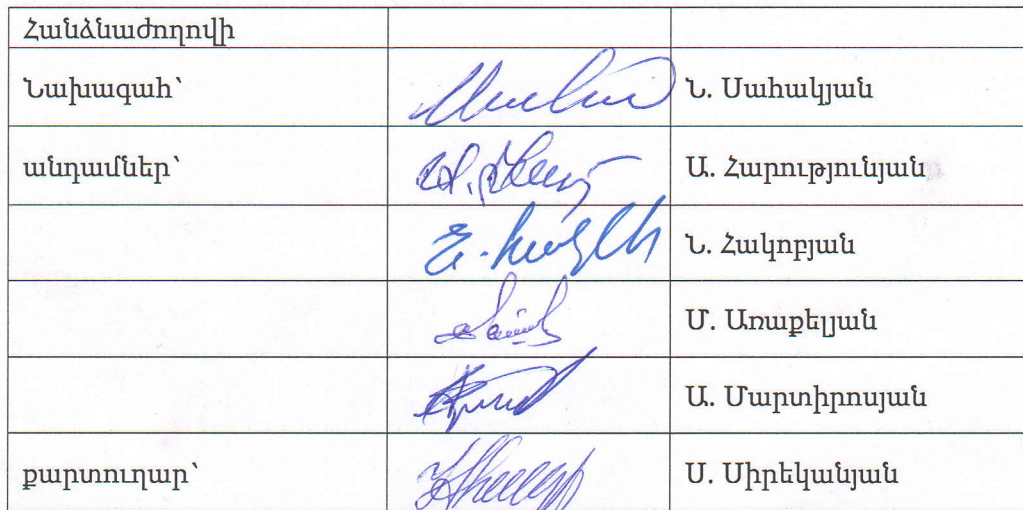 Հանձնաժողովի
Նախագահ՝ Ն. Սահակյան
անդամներ՝ Ա. Հարությունյան
Ն. Հակոբյան
Մ. Առաքելյան
Ա. Մարտիրոսյան
քարտուղար՝ Ս. Սիրեկանյան